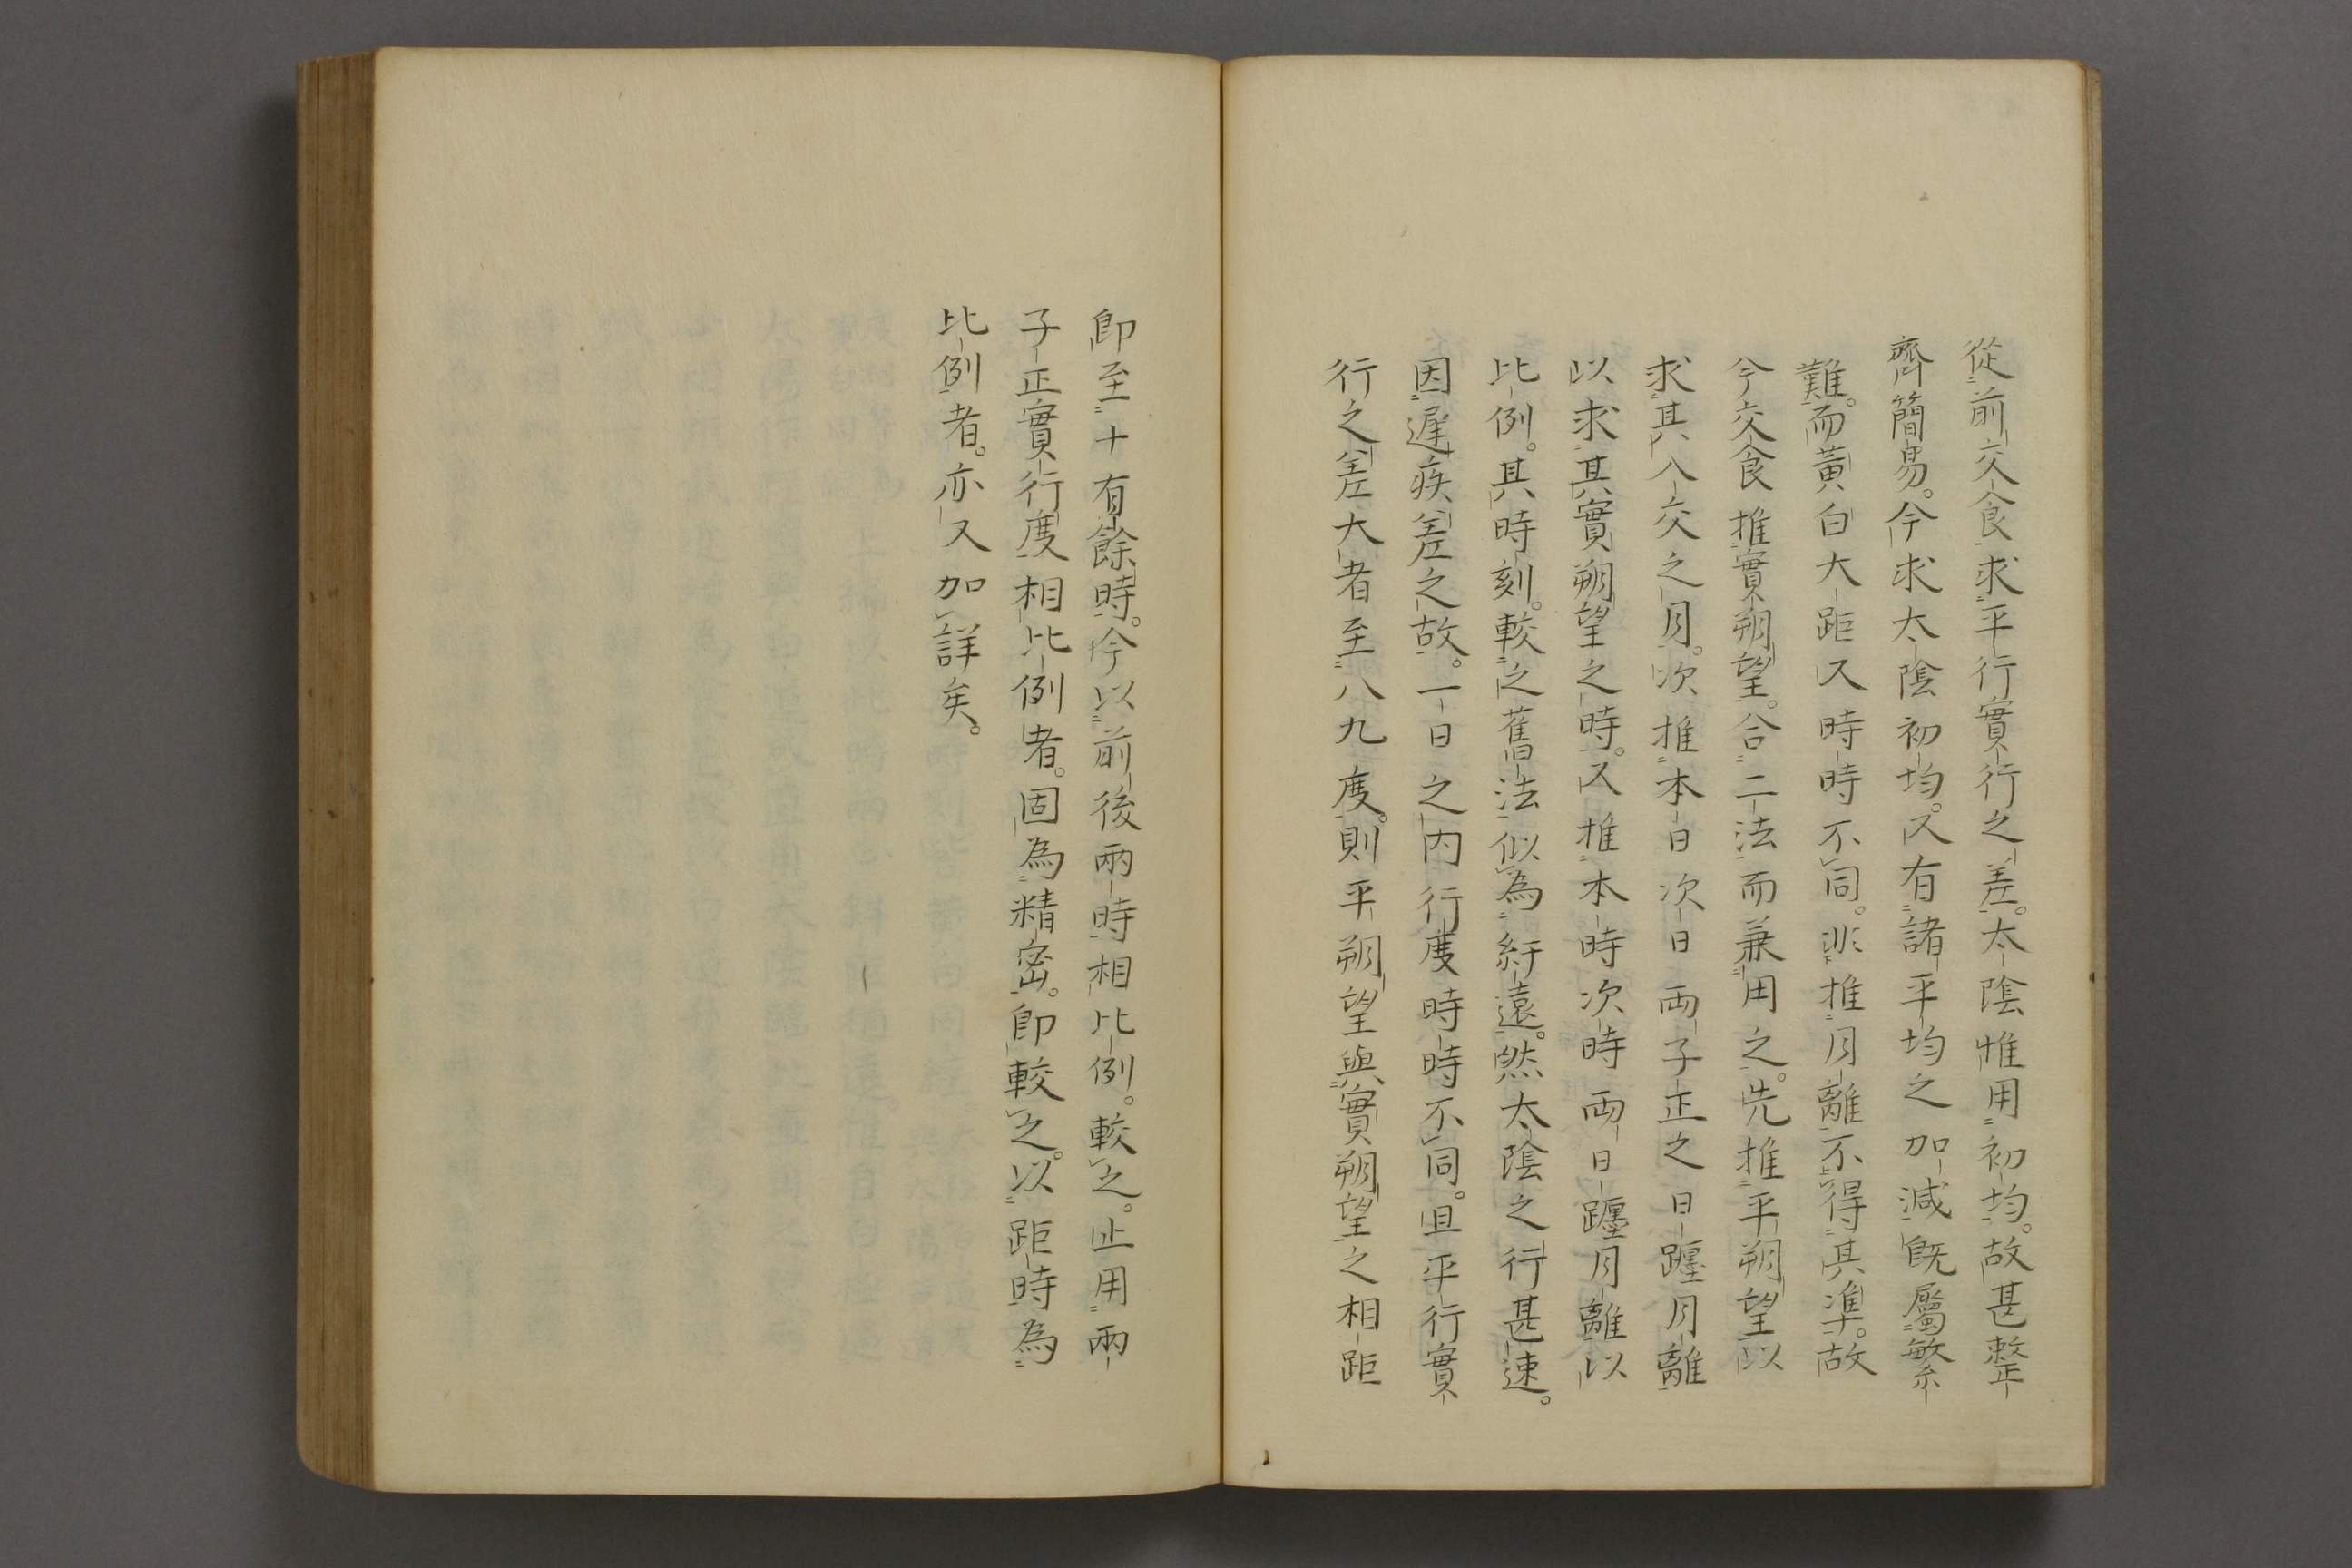 從前交食求平行實行之差。太陰惟用初均。故甚整
齊簡易。今求太陰初均。又有諸平均之加減既屬繁
難。而黃白大距又時時不同。非推月離不得其準。故
今交食推實朔望。合二法而兼用之。先推平朔望以
求其入交之月。次推本日次日兩子正之日躔月離
以求其實朔望之時。又推本時次時兩日躔月離以
比例。其時刻。較之舊法似為紆遠。然太陰之行甚速。
因遲疾差之故。一日之內行度時時不同。且平行實
行之差大者至八九度。則平朔望與實朔望之相距
即至十有餘時。今以前後兩時相比例。較之。止用兩
子正實行度相比例者。固為精密。即較之。以距時為
比例者。亦又加詳矣。